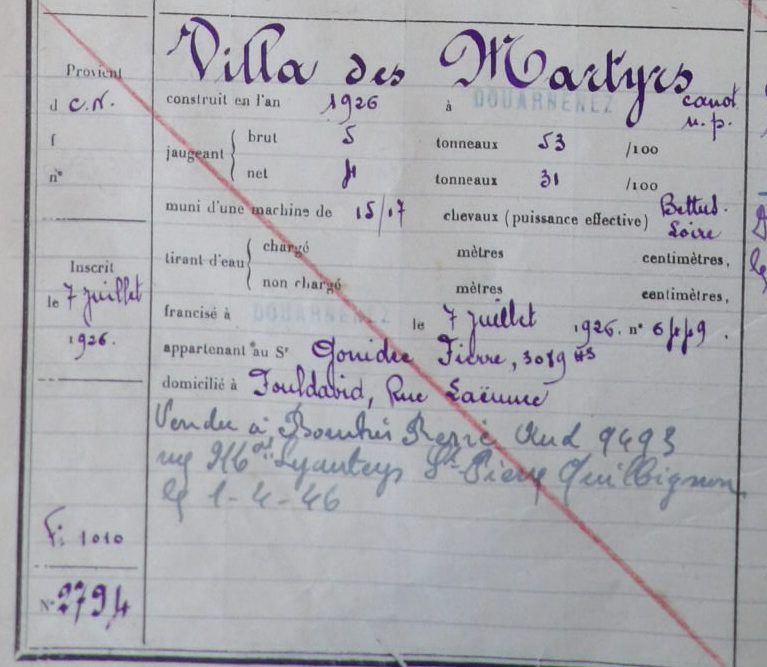 Villa des Martyrs
Provient
d C.N.
f
n°
construit en l'an 1926 à DOUARNENEZ canot
n.p.
jaugeant { brut 5 tonneaux 53 /100
net 4 tonneaux 31 /100
muni d'une machine de 15/17 chevaux (puissance effective) Bettus-
Loire
tirant d'eau { chargé mètres centimètres,
non chargé mètres centimètres,
Inscrit
le 7 juillet
1926.
francisé à DOUARNENEZ le 7 juillet 1926. n° 6449.
appartenant au Sr Gouidec Pierre, 3089 HS
domicilié à Pouldavid, Rue Laënnec
Vendu à René 9493
Lyauteys St Pierre Quilbignon
le 1-4-46
F: 1010
N° 2794